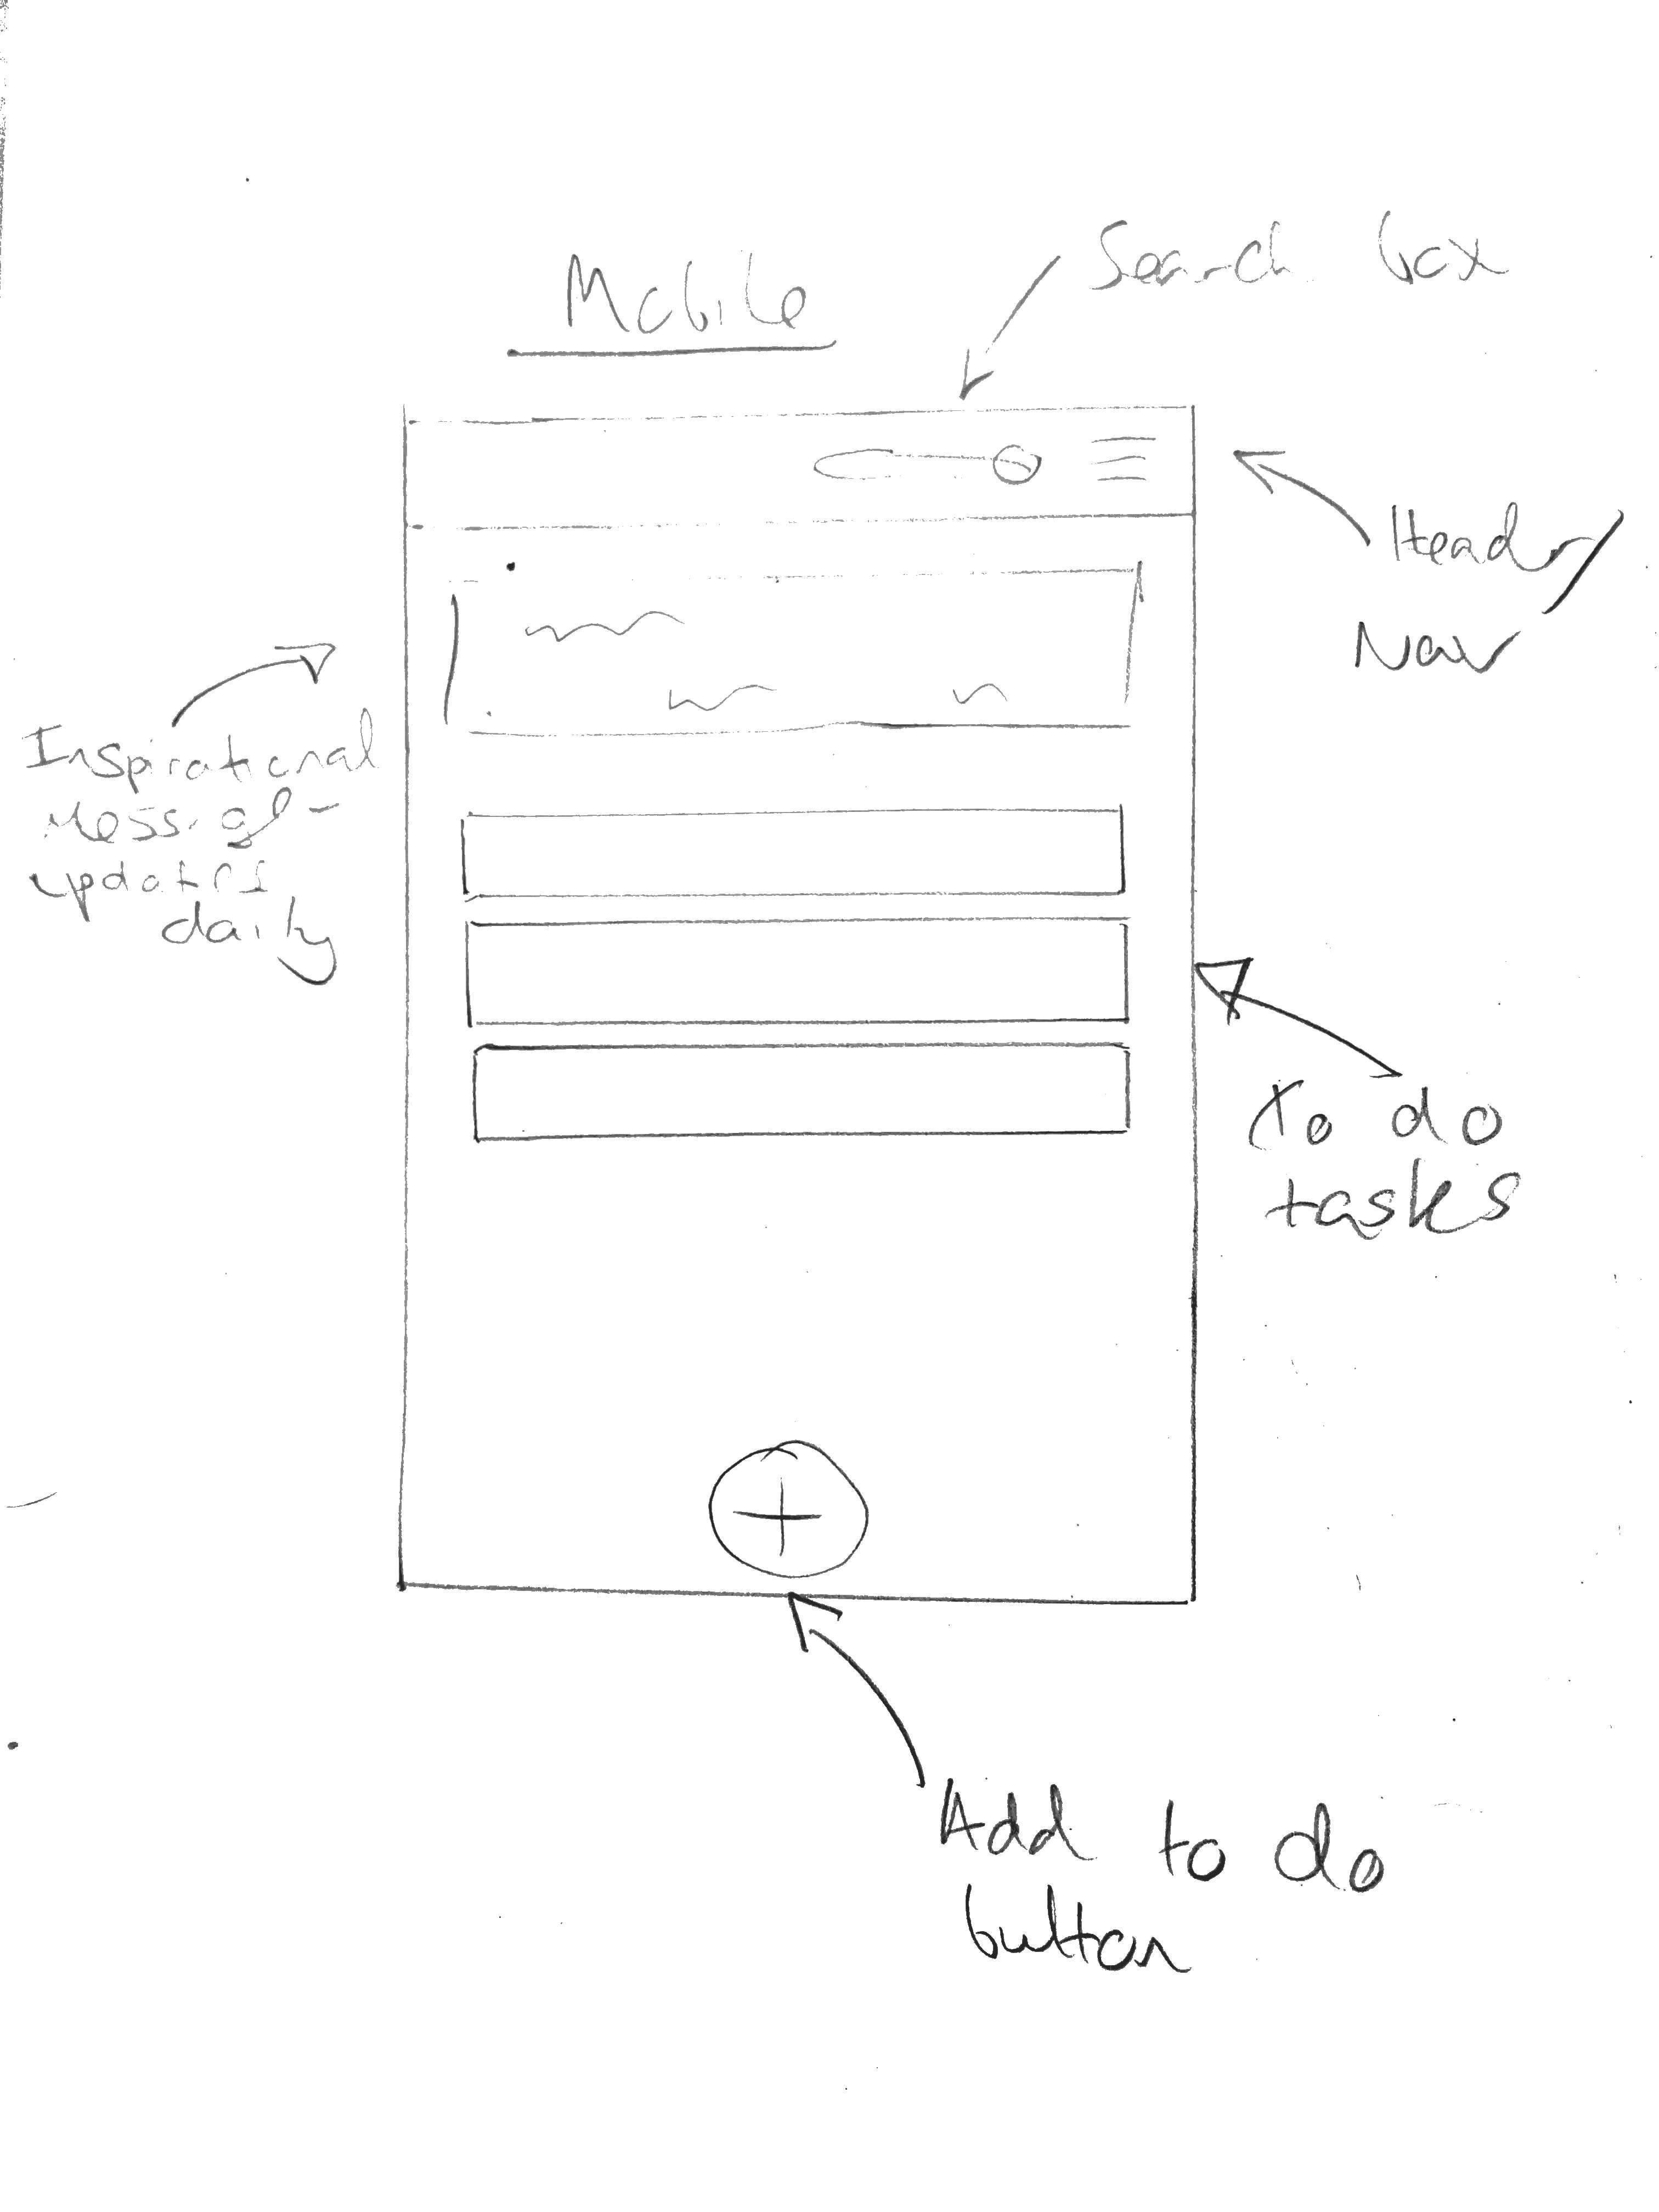 Mobile
Search box
Header/
Nav
Inspirational
Message -
updates
daily
To do
tasks
Add to do
button